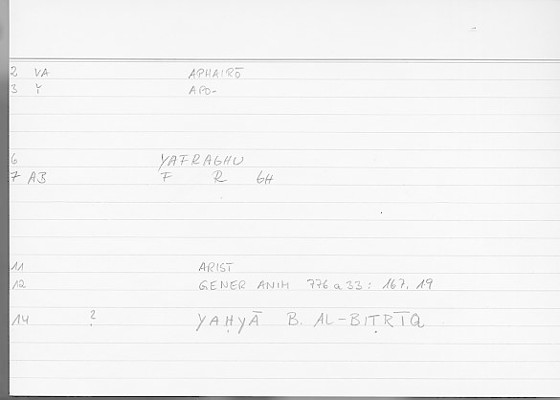 2 VA APHAIRŌ
3 Y̆ APO-
6 YAFRAGHU
7 AB F R GH
11 ARIST
12 GENER ANIM 776 a 33 : 167, 19
14 ? YAḤYĀ B. AL-BIṬRĪQ